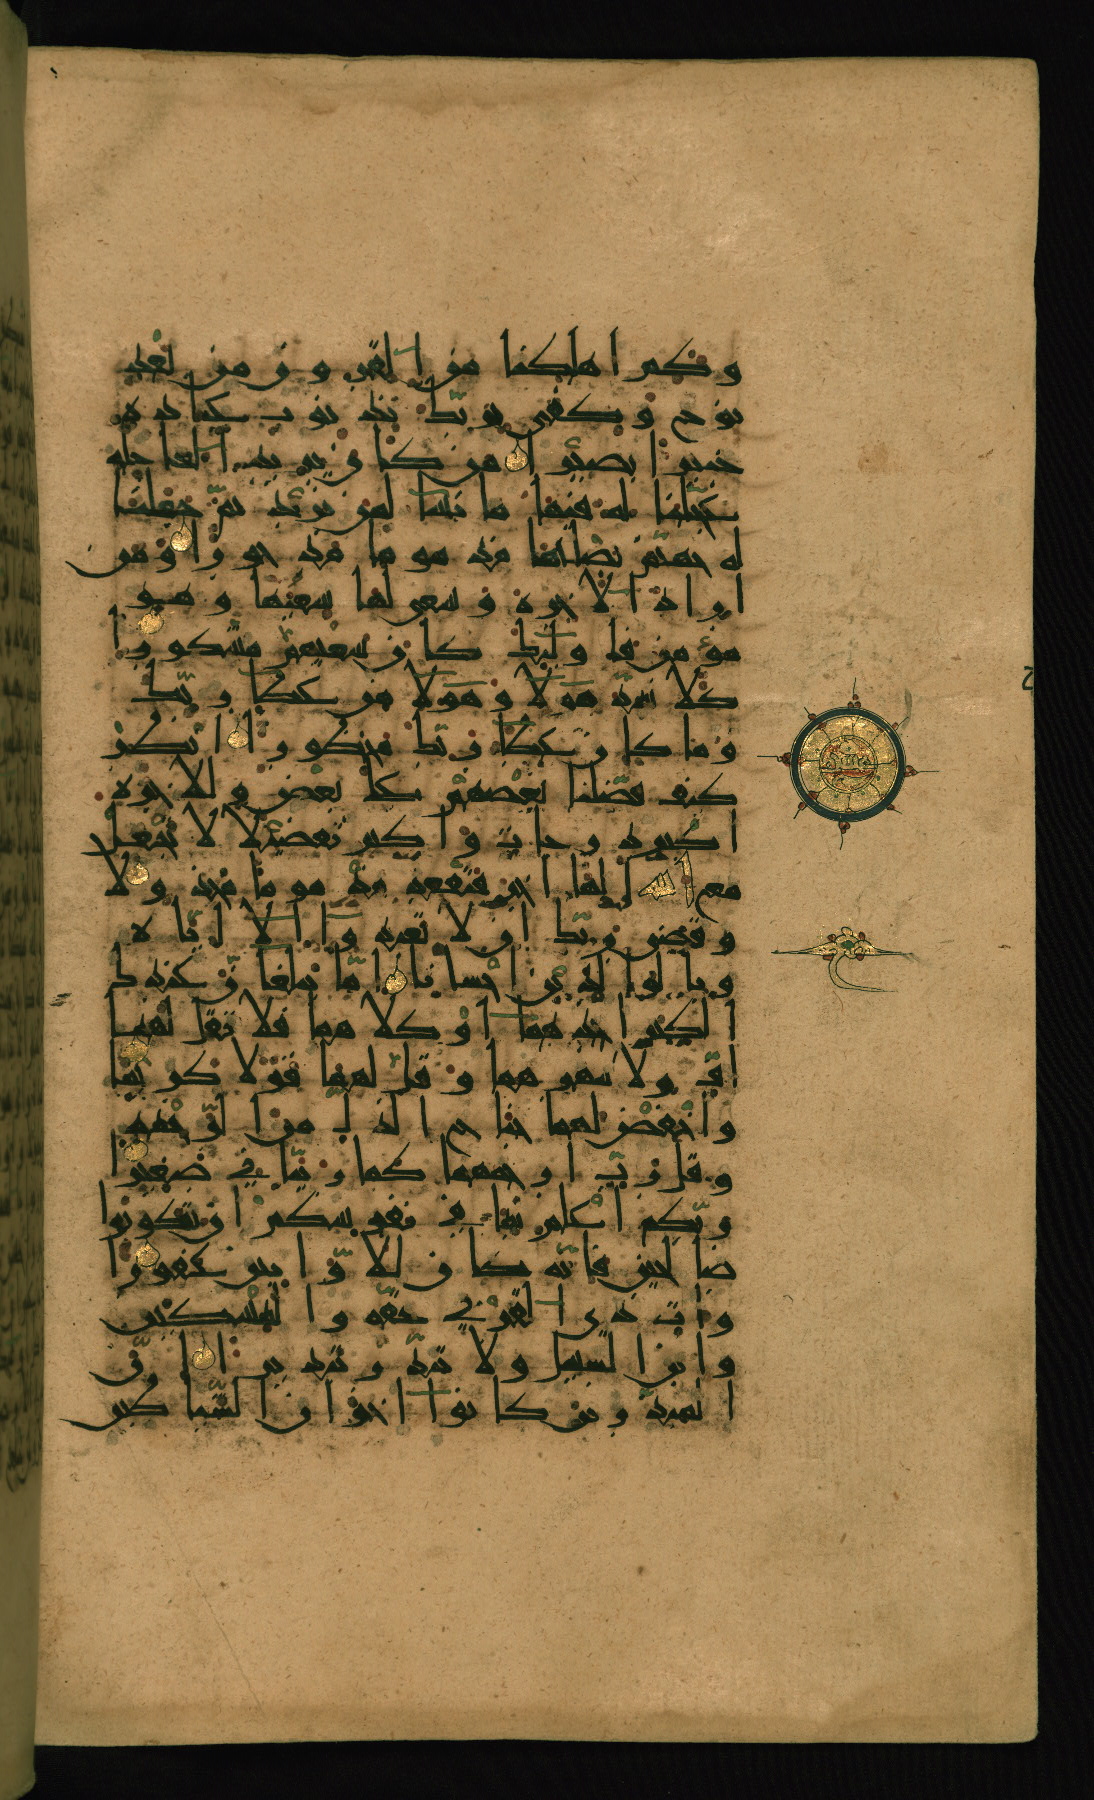 وكم اهلكنا من القرون من بعد
نوح وكفى بربك بذنوب عباده
خبيرا بصيرا من كان يريد العاجلة
عجلنا له فيها ما نشا لمن نريد ثم جعلنا
له جهنم يصلها مذموما مدحورا ومن
اراد الاخرة وسعى لها سعيها وهو
مؤمن فاولئك كان سعيهم مشكورا
كلا نمد هولا وهولا من عطا ربك
وما كان عطا ربك محظورا انظر
كيف فضلنا بعضهم على بعض وللاخرة
اكبر درجات واكبر تفضيلا لا تجعل
مع الله الها اخر فتقعد مذموما مخذولا
وقضى ربك ان لا تعبدوا الا اياه
وبالوالدين احسانا اما يبلغن عندك
الكبر احدهما او كلاهما فلا تقل لهما
اف ولا تنهرهما وقل لهما قولا كريما
واخفض لهما جناح الذل من الرحمة
وقل رب ارحمهما كما ربياني صغيرا
ربكم اعلم بما في نفوسكم ان تكونوا
صالحين فانه كان للاوابين غفورا
وات ذى القربى حقه والمسكين
وابن السبيل ولا تبذر تبذيرا ان
المبذرين كانوا اخوان الشياطين